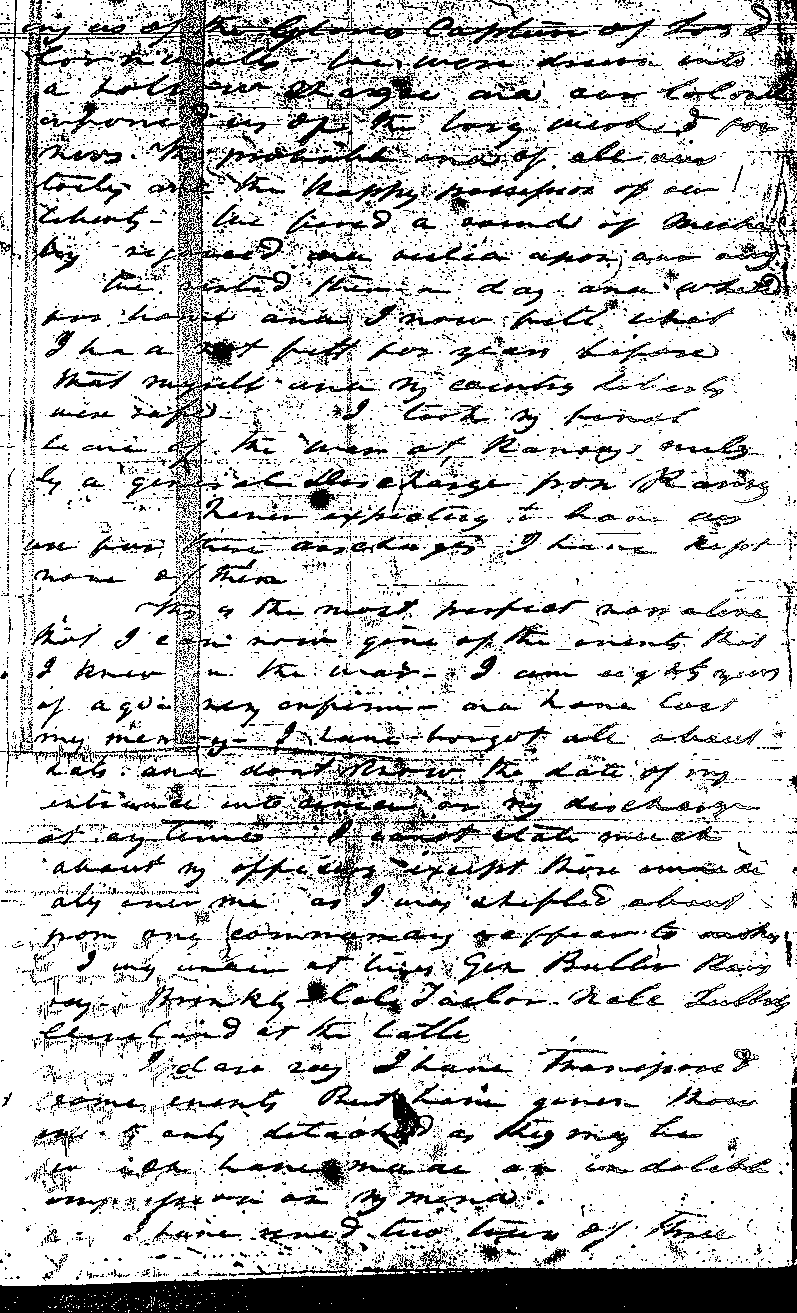 ing us of the Glorious Capture of Lord
Cornwalls - we were drawn into
a hollow Square and our Colonel
informed us of the long wished for
news. The probable end of all our
toils and the happy possession of our
liberty - We fired a round of Musket
by rejoiced
We rested then a day and
for home and I now felt what
I had not felt for years before
that myself and my country liberty
were safe - I took my final
leave of the war at Ramseys
by a general discharge from Ramsey
Never expecting to have any
use for these discharges I have kept
none of them
This is the most perfect narrative
that I can now give of the events that
I knew in the war - I am eighty years
of age very infirm - and have lost
my memory - I have forgot all about
dats and dont know the date of my
entrance into service or my discharge
at any time I cannot state much
about my officers except those
over me as I was shifted about
from one commanding officer to another
I was under at times Gen Butler
Col. Taylor
Cleveland at the battle
I dare say I have Transposed
some events But have given those
only detached as they may be
which have made an indelible
impression on my mind.
I have served two tours of three